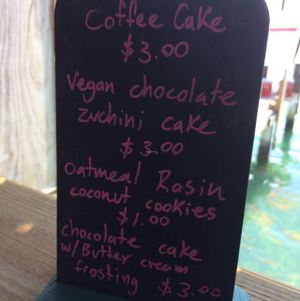 Coffee Cake
$3.00
Vegan chocolate
zuchini cake
$3.00
oatmeal Rasin
coconut cookies
$1.00
chocolate cake
w/Butter cream
frosting $3.00